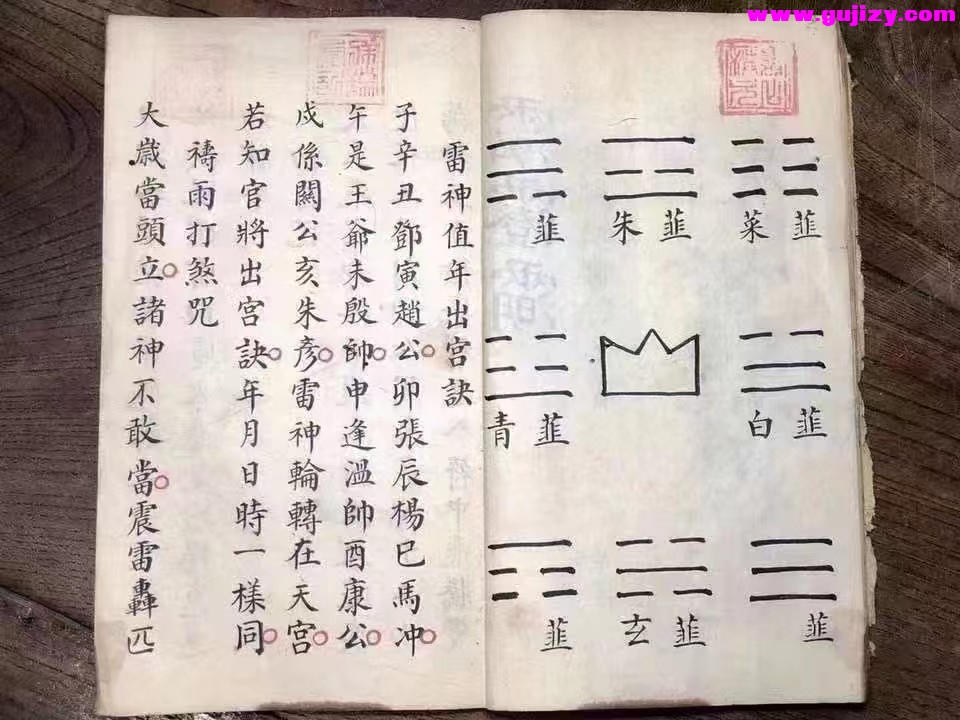 www.gujizy.com
韮菜
韮朱
韮
韮白
韮青
韮
韮玄
韮
雷神值年出宫訣
子辛丑鄧寅趙公卯張辰楊巳馬冲
午是王爺未殷帥申逢溫帥酉康公
戌係關公亥朱彥雷神輪轉在天宮
若知官將出宮訣年月日時一樣同
禱雨打煞咒
大歲當頭立諸神不敢當震雷轟匹